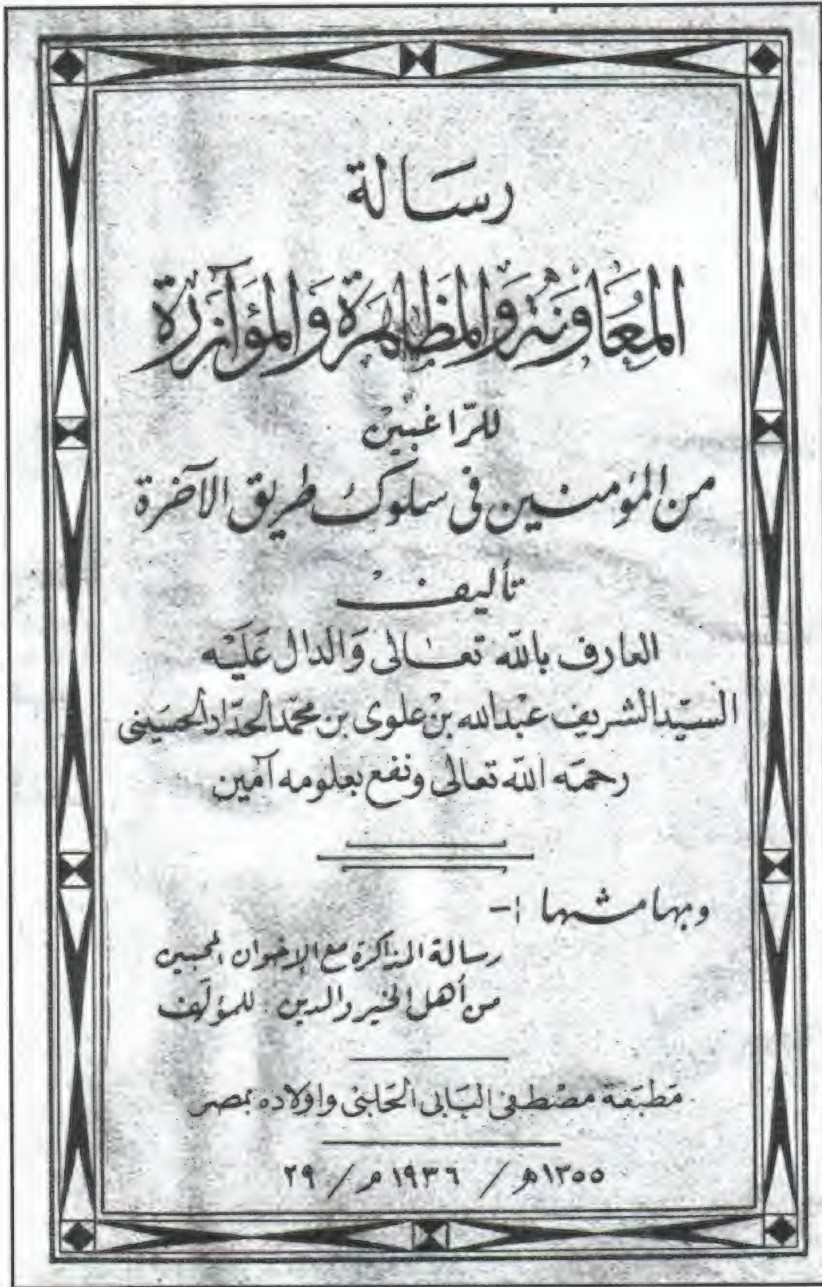 رسالة
المعاونة والمظاهرة والمؤازرة
للراغبين
من المؤمنين في سلوك طريق الآخرة
تأليف
العارف بالله تعالى والدال عليه
السيد الشريف عبدالله بن علوى بن محمد الحداد الحسينى
رحمه الله تعالى ونفع بعلومه آمين
وبهامشها :-
رسالة المذاكرة مع الإخوان المحبين
من أهل الخير والدين . للمؤلف
مطبعة مصطفى البابى الحلبى واولاده بمصر
١٣٥٥ه / ١٩٣٦م / ٢٩